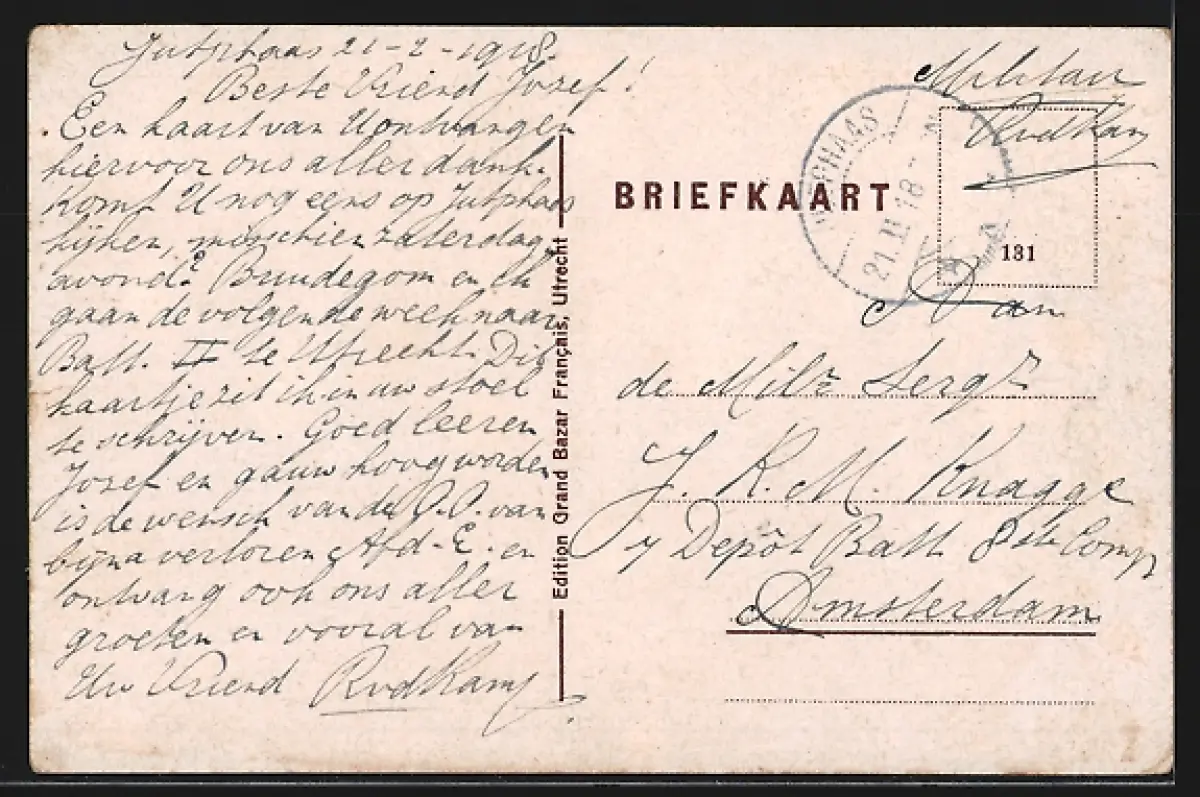 Jutphaas 21-2-1918.
Beste Vriend Jozef!
Een kaart van U ontvangen
hiervoor ons aller dank.
Komt U nog eens op Jutphaas
kijken, misschien zaterdag
avond? Bruudegom en ik
gaan de volgende week naar
Batt. II te Utrecht. Dit
kaartje zit ik in uw stoel
te schrijven. Goed leeren
Jozef en gauw hoog worden
is de wensch van de O.O. van
bijna verloren Afd-E. en
ontvang ook ons aller
groeten en vooral van
Uw Vriend RvdKamp
Edition Grand Bazar Français, Utrecht
Militair
RvdKamp
BRIEFKAART
JUTPHAAS
21.II.18
131
Aan
de Milr Sergt
J. K. M. Knagge
Depôt Batt 8ste Comp
Amsterdam